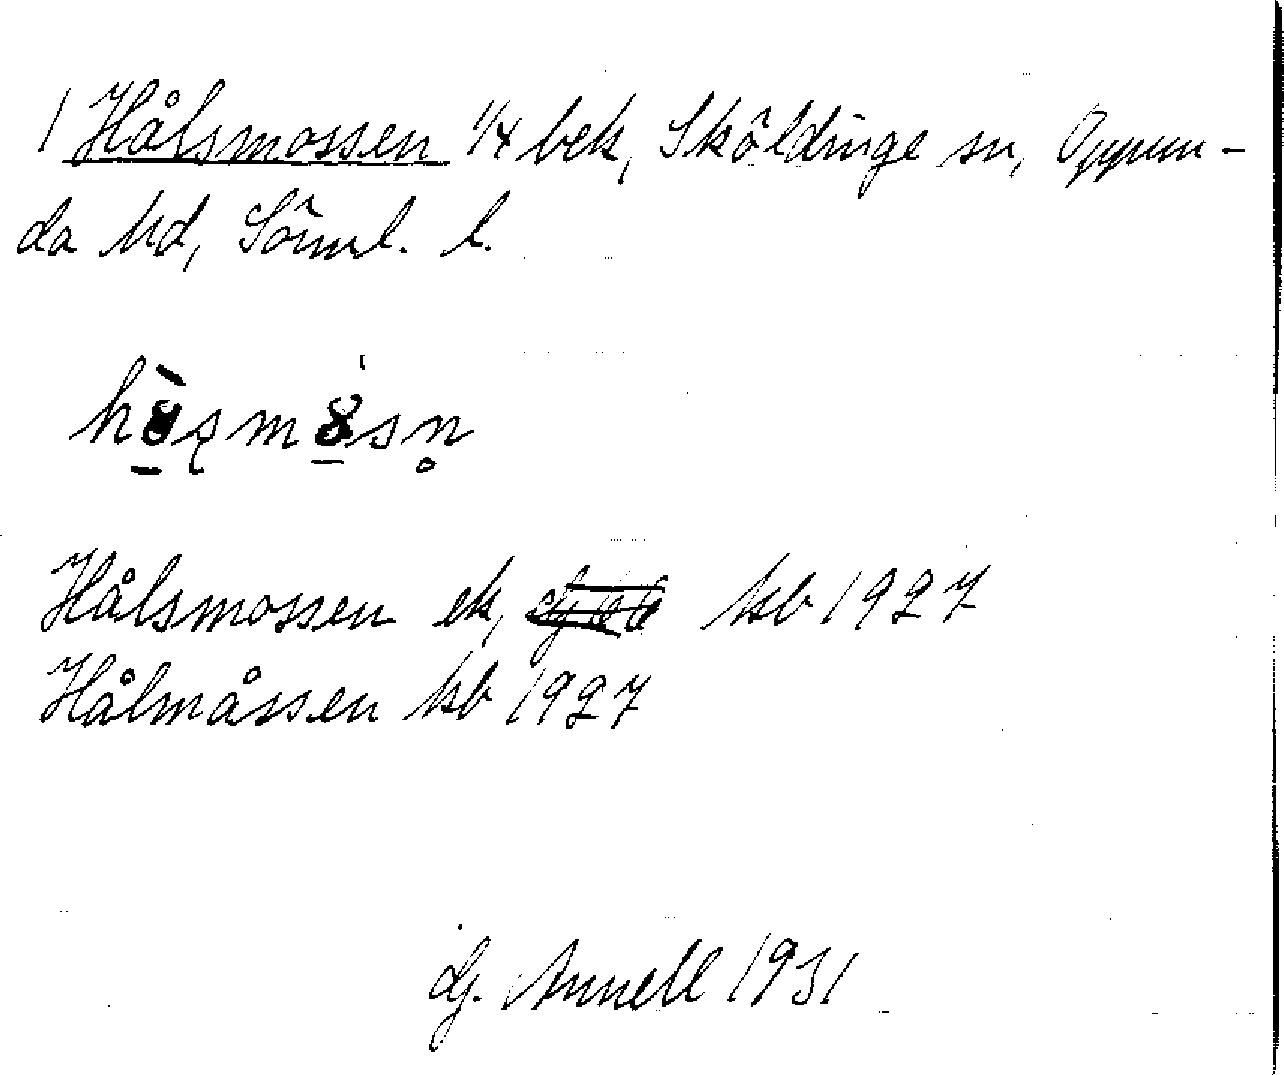 1 Hålsmossen 1/4 bek, Sköldinge sn, Oppun-
da hd, Söml. l.
Hålsmossen ek, kb 1927
Hålmåssen kb 1927
G. Annell 1931